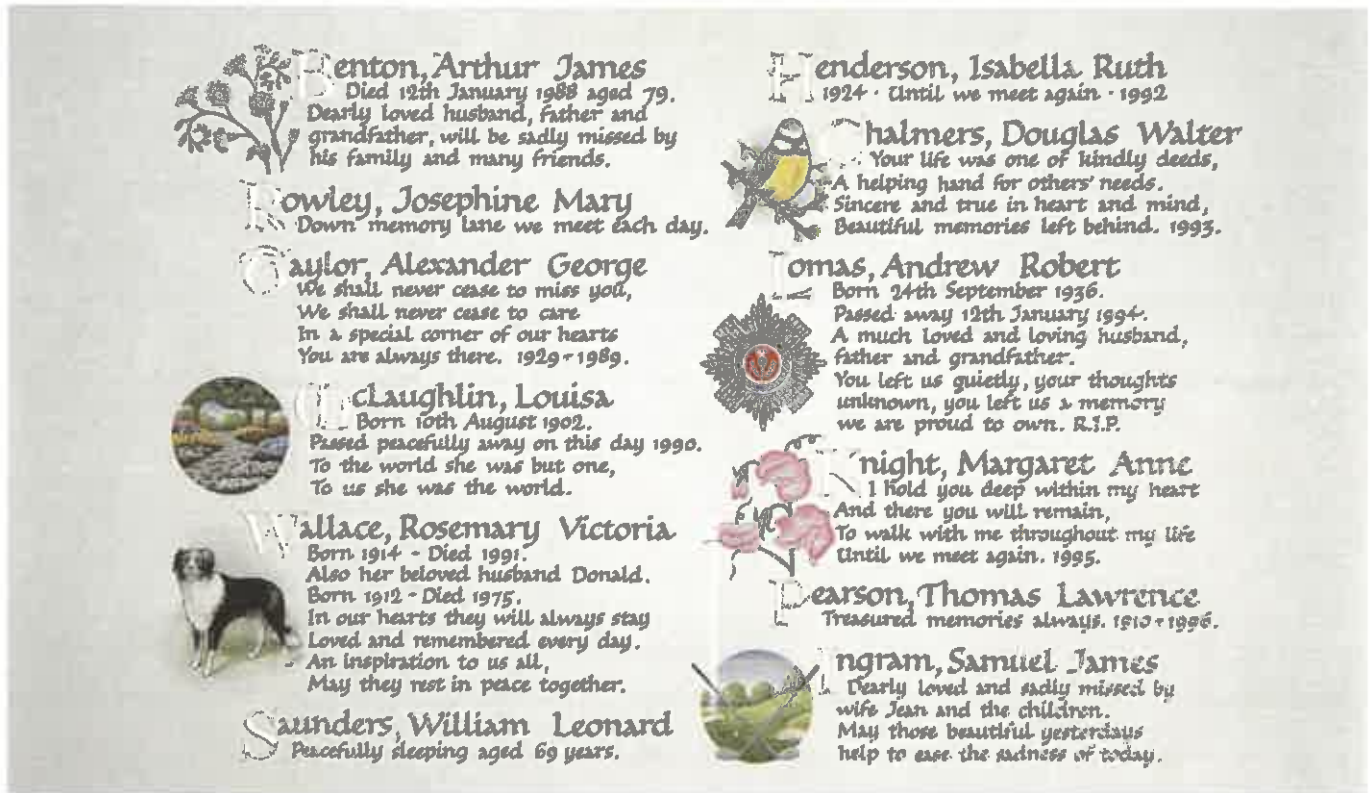 Benton, Arthur James
Died 12th January 1988 aged 79.
Dearly loved husband, father and
grandfather, will be sadly missed by
his family and many friends.
Rowley, Josephine Mary
Down memory lane we meet each day.
Taylor, Alexander George
We shall never cease to miss you,
We shall never cease to care
In a special corner of our hearts
You are always there. 1929-1989.
McLaughlin, Louisa
Born 10th August 1902.
Passed peacefully away on this day 1990.
To the world she was but one,
To us she was the world.
Wallace, Rosemary Victoria
Born 1914 - Died 1991.
Also her beloved husband Donald.
Born 1912 - Died 1975.
In our hearts they will always stay
Loved and remembered every day.
An inspiration to us all,
May they rest in peace together.
Saunders, William Leonard
Peacefully sleeping aged 69 years.
Henderson, Isabella Ruth
1924 · Until we meet again · 1992
Chalmers, Douglas Walter
Your life was one of kindly deeds,
A helping hand for others' needs.
Sincere and true in heart and mind,
Beautiful memories left behind. 1993.
Lomas, Andrew Robert
Born 24th September 1936.
Passed away 12th January 1994.
A much loved and loving husband,
father and grandfather.
You left us quietly, your thoughts
unknown, you left us a memory
we are proud to own. R.I.P.
Knight, Margaret Anne
I hold you deep within my heart
And there you will remain,
To walk with me throughout my life
Until we meet again. 1995.
Pearson, Thomas Lawrence
Treasured memories always. 1910-1996.
Ingram, Samuel James
Dearly loved and sadly missed by
wife Jean and the children.
May those beautiful yesterdays
help to ease the sadness of today.